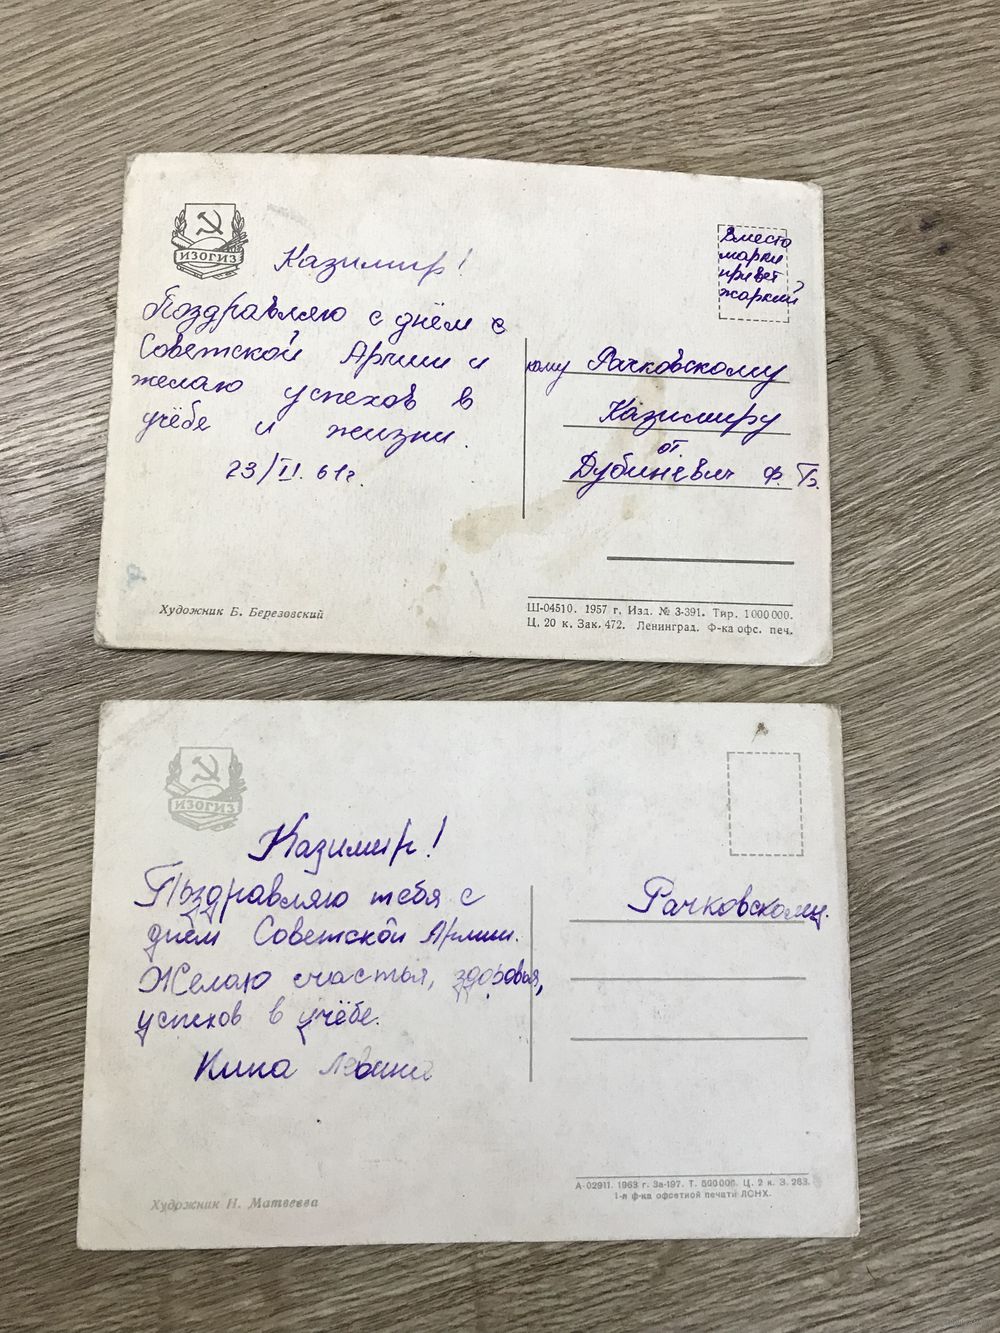 ИЗОГИЗ
Казимир!
Поздравляю с днём с
Советской Армии и
желаю успехов в
учёбе и жизни.
23/II. 61г.
Художник Б. Березовский
Вместо
марки
привет
жаркий
кому Рачковскому
Казимиру
от
Дубиневич Ф. Б.
Ш-04510. 1957 г. Изд. № 3-391. Тир. 1 000 000.
Ц. 20 к. Зак. 472. Ленинград. Ф-ка офс. печ.
ИЗОГИЗ
Казимир!
Поздравляю тебя с
днём Советской Армии.
Желаю счастья, здоровья,
успехов в учёбе.
Художник Н. Матвеева
Рачковскому.
А-02911. 1963 г. За-197. Т. 500 000. Ц. 2 к. З. 263.
1-я ф-ка офсетной печати ЛСНХ.